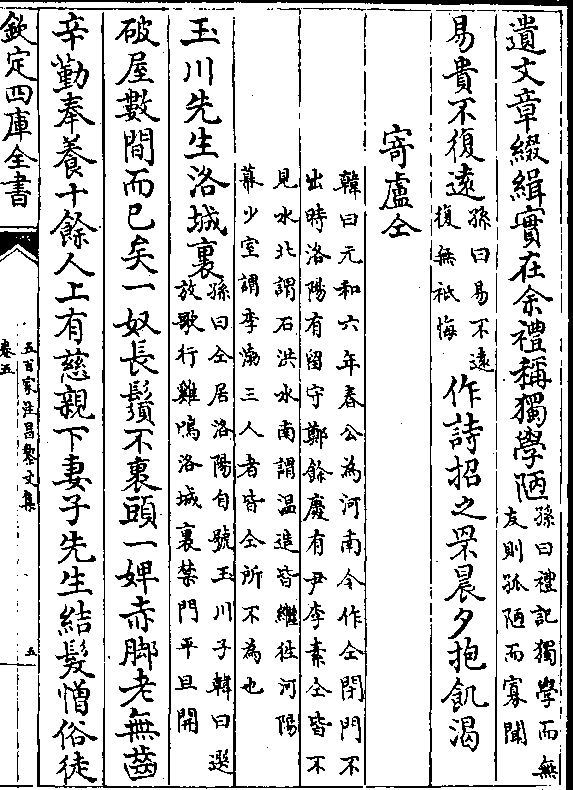 遺文章綴緝實在余禮稱獨學陋
孫曰禮記獨學而無
友則孤陋而寡聞
易貴不復遠
孫曰易不遠
復無祇悔
作詩招之罘晨夕抱飢渴
寄盧仝
韓曰元和六年春公為河南令作仝閉門不
出時洛陽有留守鄭餘慶有尹李素仝皆不
見水北謂石洪水南謂温造皆繼徃河陽
幕少室謂李渤三人者皆仝所不為也
玉川先生洛城裏
孫曰仝居洛陽自號玉川子韓曰選
放歌行雞鳴洛城裏禁門平旦開
破屋數間而已矣一奴長鬚不裹頭一婢赤脚老無齒
辛勤奉養十餘人上有慈親下妻子先生結髮憎俗徒
欽定四庫全書
五百家注昌黎文集
卷五
五